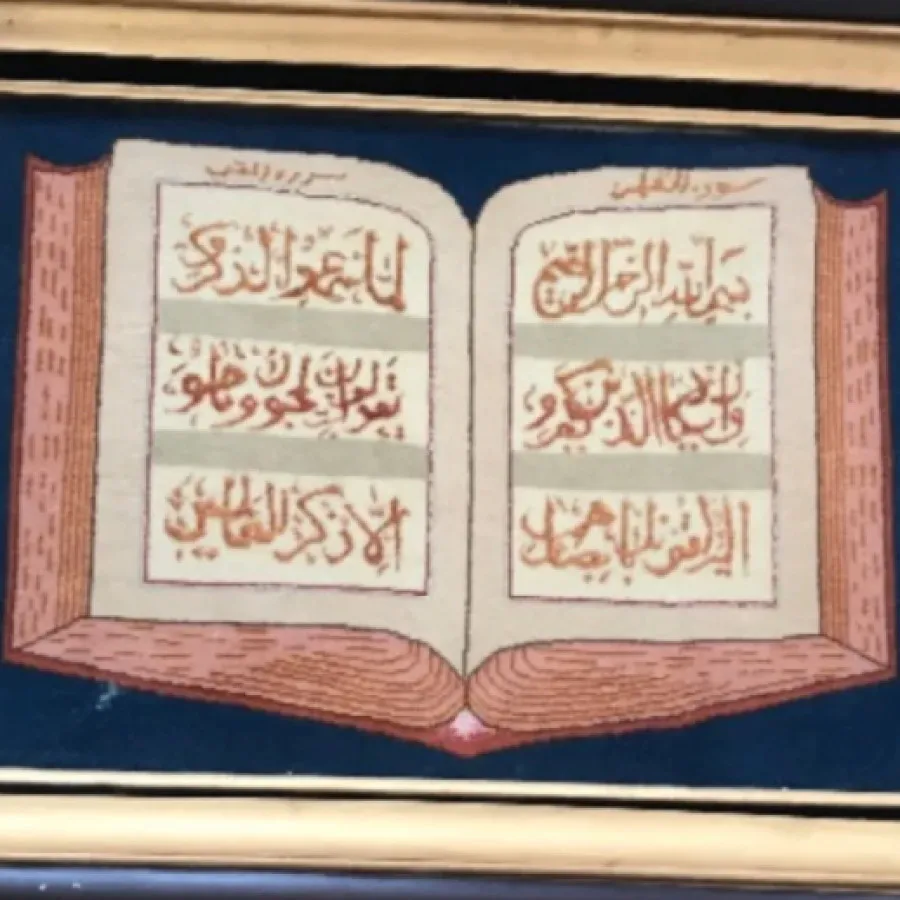 سورة القلم
بسم الله الرحمن الرحيم
وان يكاد الذين كفروا
ليزلقونك بابصارهم
سورة القلم
لما سمعوا الذكر و
يقولون انه لمجنون و ما هو
الا ذكر للعالمين